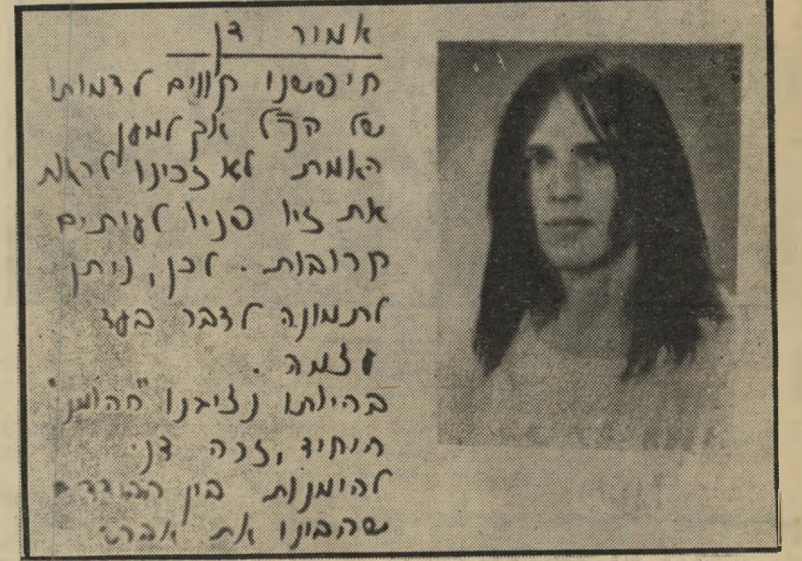 אמיר דן
חיפשנו קווים לדמותו
של הנ"ל אך למען
האמת לא זכינו לראות
את זיו פניו לעיתים
קרובות. לכן, ניתן
לתמונה לדבר בעד
עצמה.
בהיותו נציבנו
היחיד, זכה דני
להימנות בין
שהבינו את